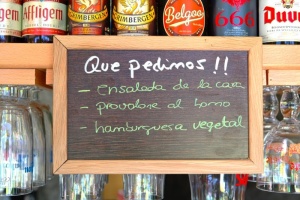 Affligem
Affligem
GRIMBERGEN
GRIMBERGEN
Belgoo
666
Duvel
Que pedimos !!
- ensalada de la casa
- provolone al horno
- hamburguesa vegetal